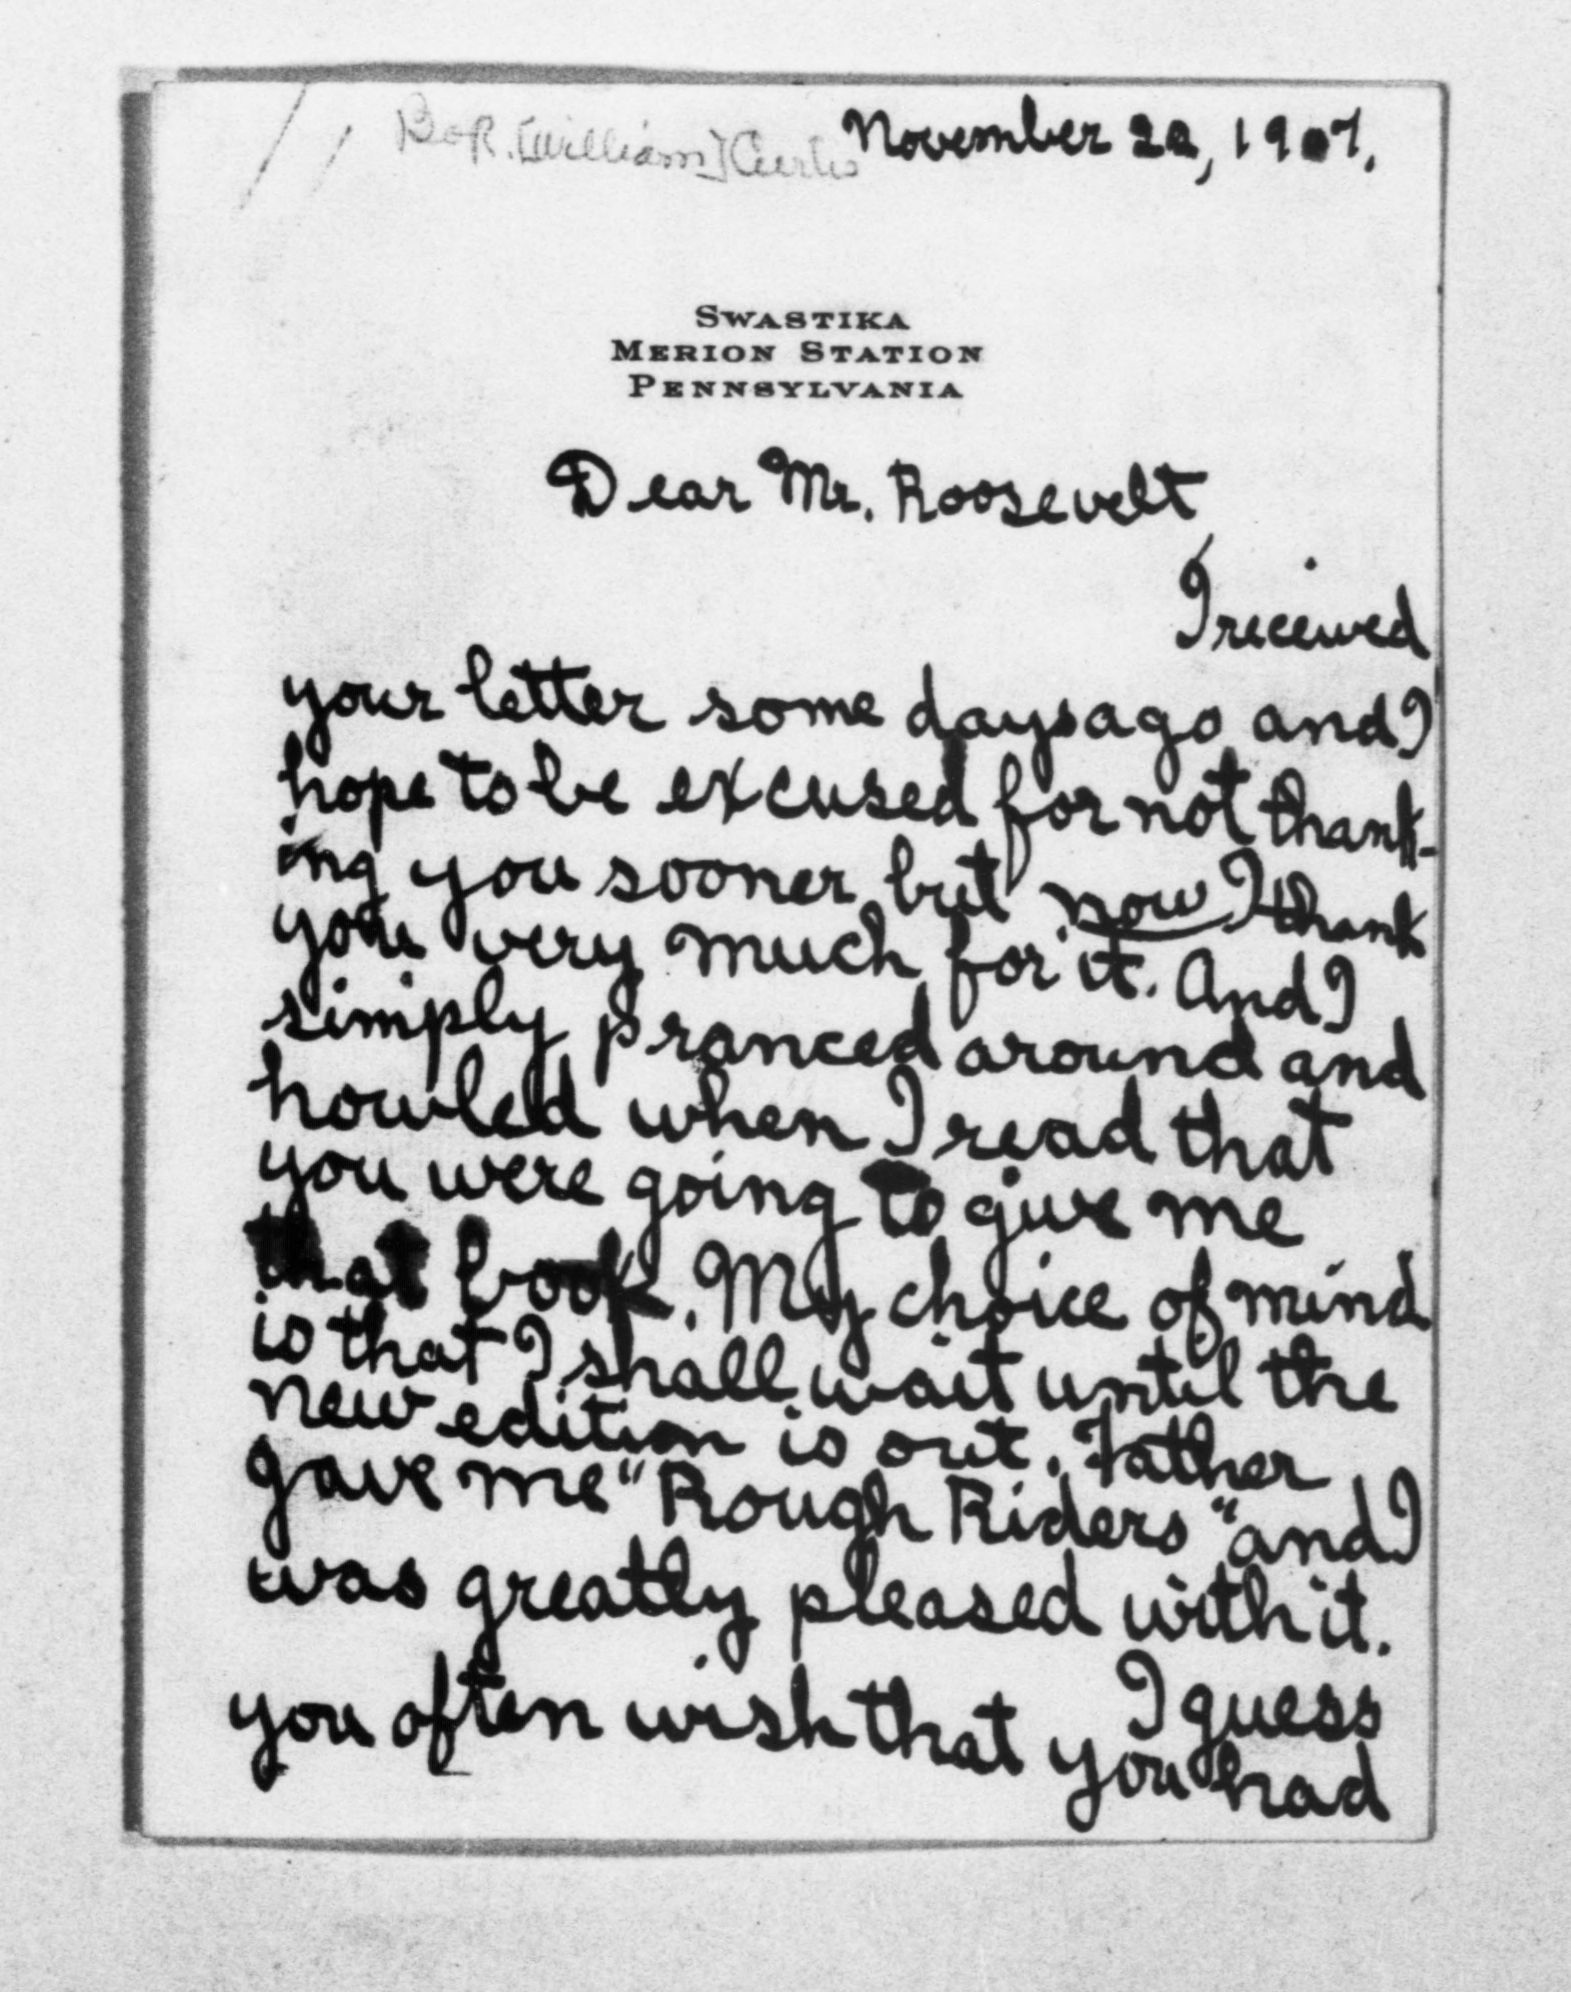 Bok. [William] Curtis
November 22, 1907.
SWASTIKA
MERION STATION
PENNSYLVANIA
Dear Mr. Roosevelt,
I received
your letter some days ago and I
hope to be excused for not thank-
ing you sooner but now I thank
you very much for it. And I
simply pranced around and
howled when I read that
you were going to give me
that book. My choice of mind
is that I shall wait until the
new edition is out. Father
gave me "Rough Riders" and I
was greatly pleased with it.
I guess
you often wish that you had